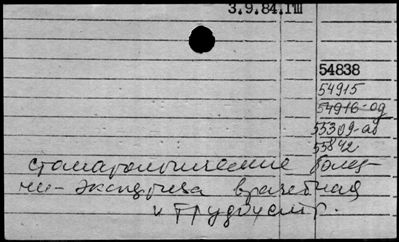 3.9.84.1Ш
54838
54915
54916-од
55309-ав
55842
стоматологические болез-
ни-экспертиза врачебная
и трудоустр.